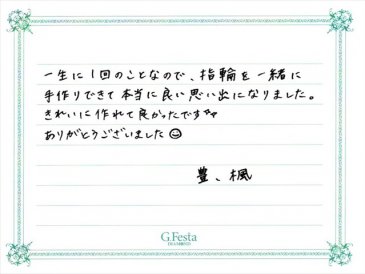 一生に1回のことなので、指輪を一緒に
手作りできて本当に良い思い出になりました。
きれいに作れて良かったです☆☆
ありがとうございました☺
豊、楓
G.Festa